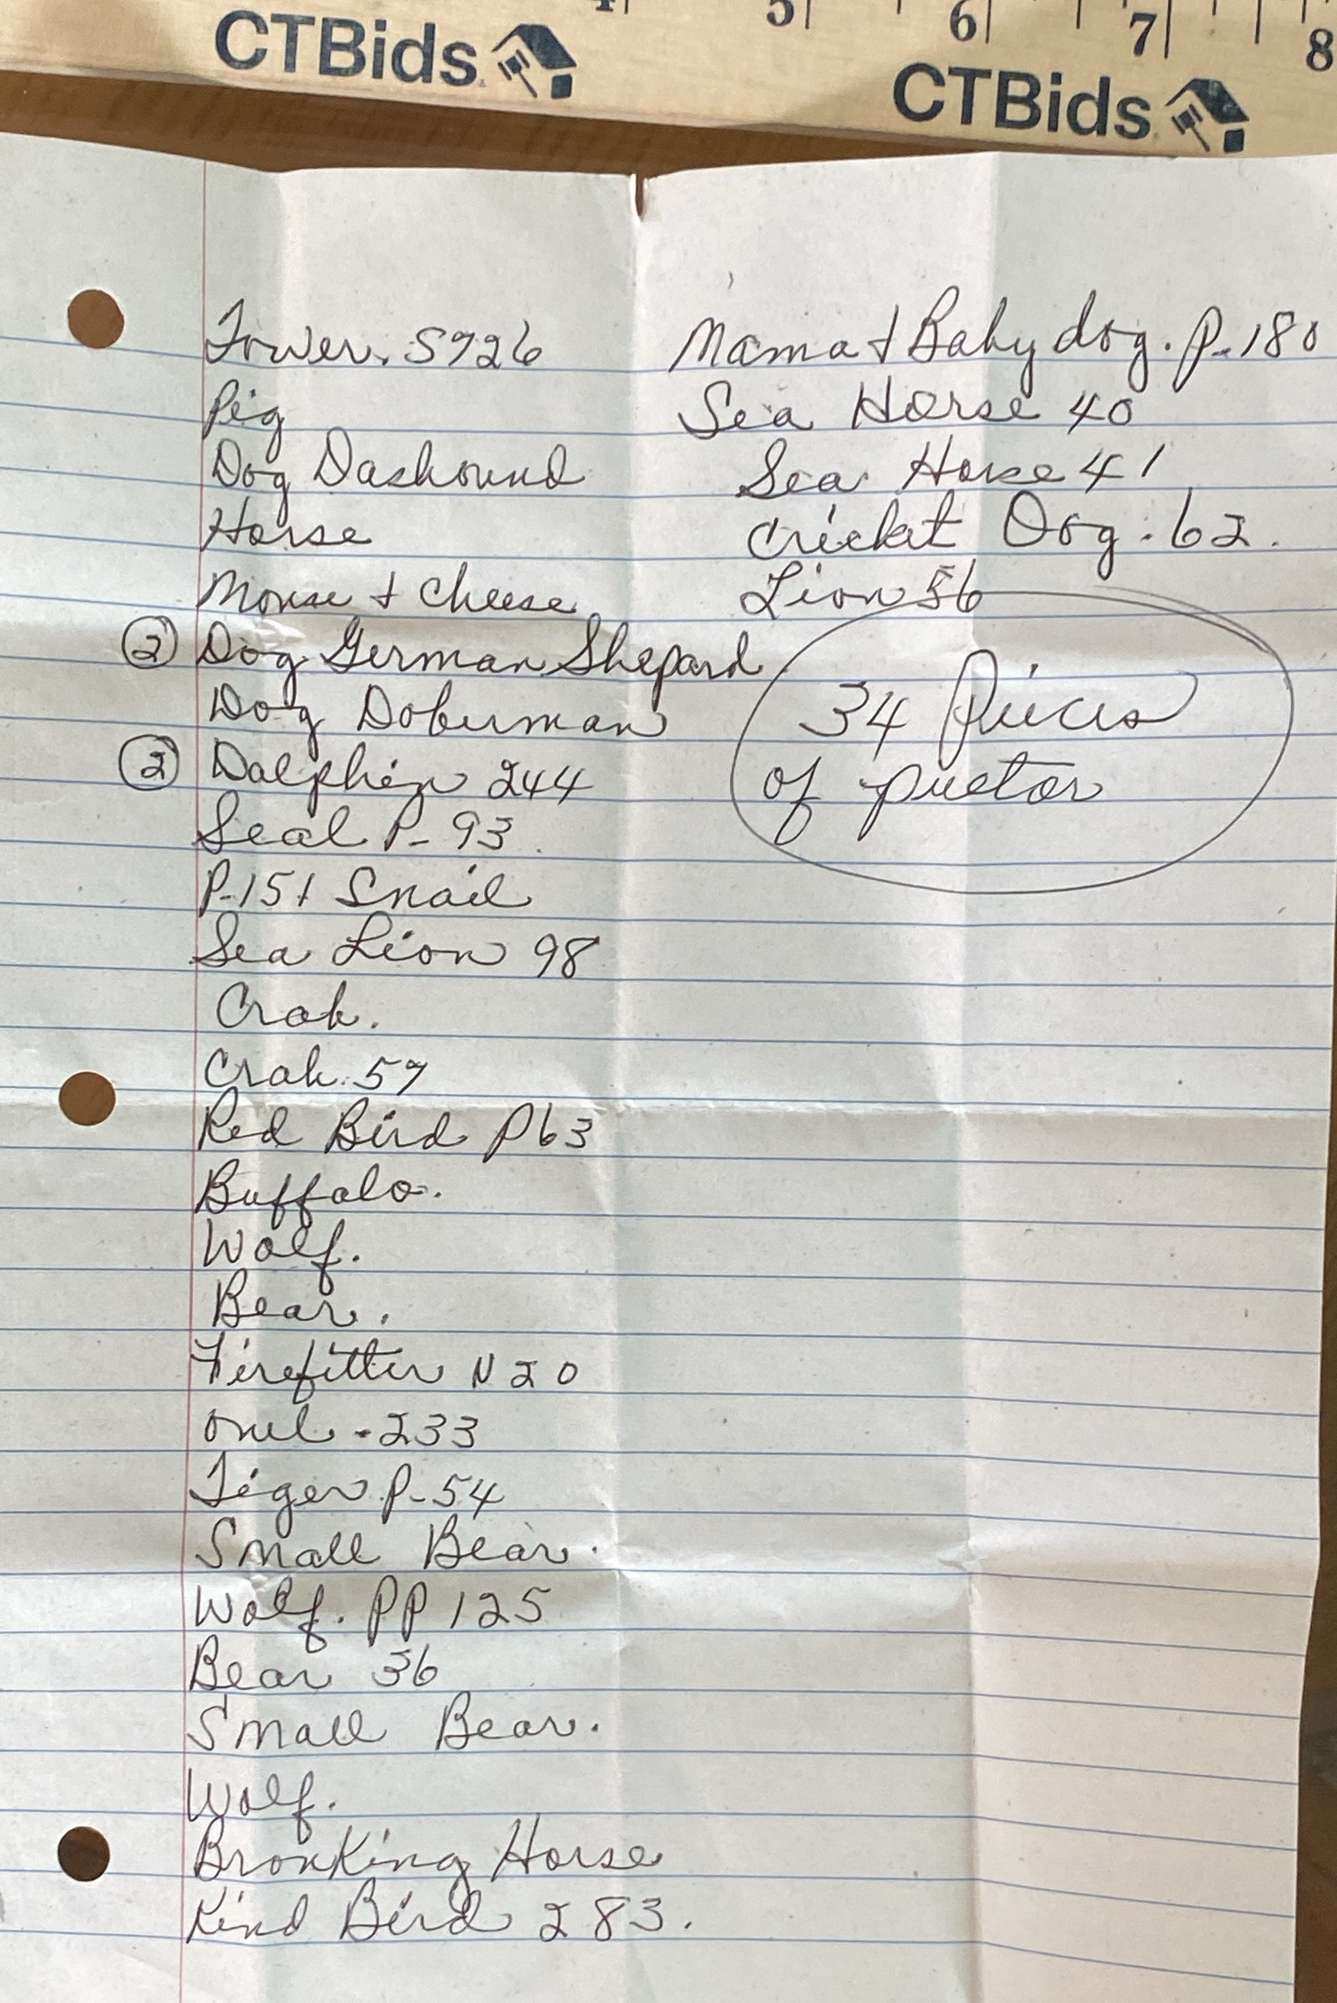 CTBids
5 6 7 8
CTBids
Tower. S926
Pig
Dog Dashound
Horse
Mouse + Cheese
② Dog German Shepard
Dog Doberman
② Dalphin 244
Seal P-93.
P-151 Snail
Sea Lion 98
Crab.
Crab. 57
Red Bird P63
Buffalo.
Wolf.
Bear.
Firefitter N20
Owl - 233
Tiger P-54
Small Bear.
Wolf. PP 125
Bear 36
Small Bear.
Wolf.
Bronking Horse
Kind Bird 283.
Mama + Baby dog. P-180
Sea Horse 40
Sea Horse 41
Cricket Dog. 62.
Lion 56
34 Pieces
of puetor